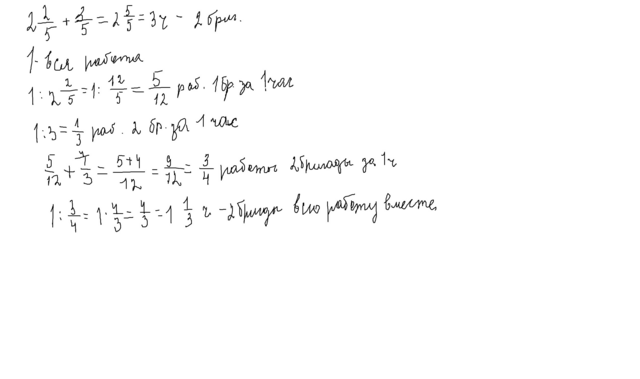 2 2/5 + 3/5 = 2 5/5 = 3ч - 2 бриг.
1 - вся работа
1 : 2 2/5 = 1 : 12/5 = 5/12 раб. 1 бр. за 1 час
1 : 3 = 1/3 раб. 2 бр. за 1 час
5/12 + 1/3 = 5+4/12 = 9/12 = 3/4 работы 2 бригады за 1 ч
1 : 3/4 = 1 · 4/3 = 4/3 = 1 1/3 ч - 2 бригады всю работу вместе.